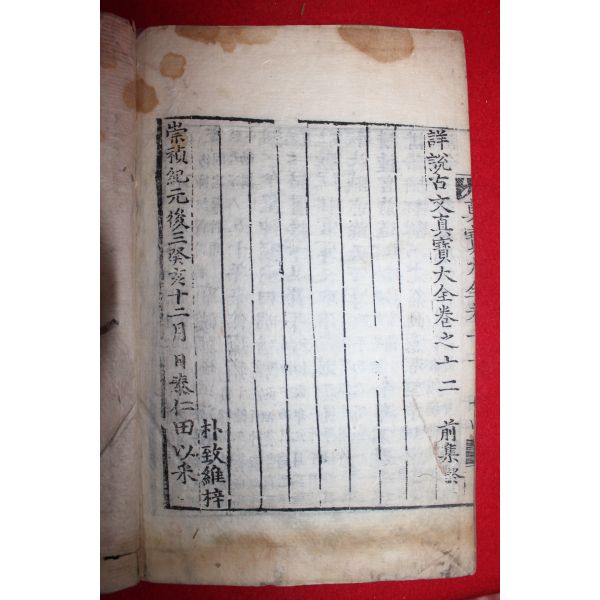 詳說古文真寶大全卷之十二 前集終
朴致維梓
崇禎紀元後三癸亥十二月 日泰仁田以采